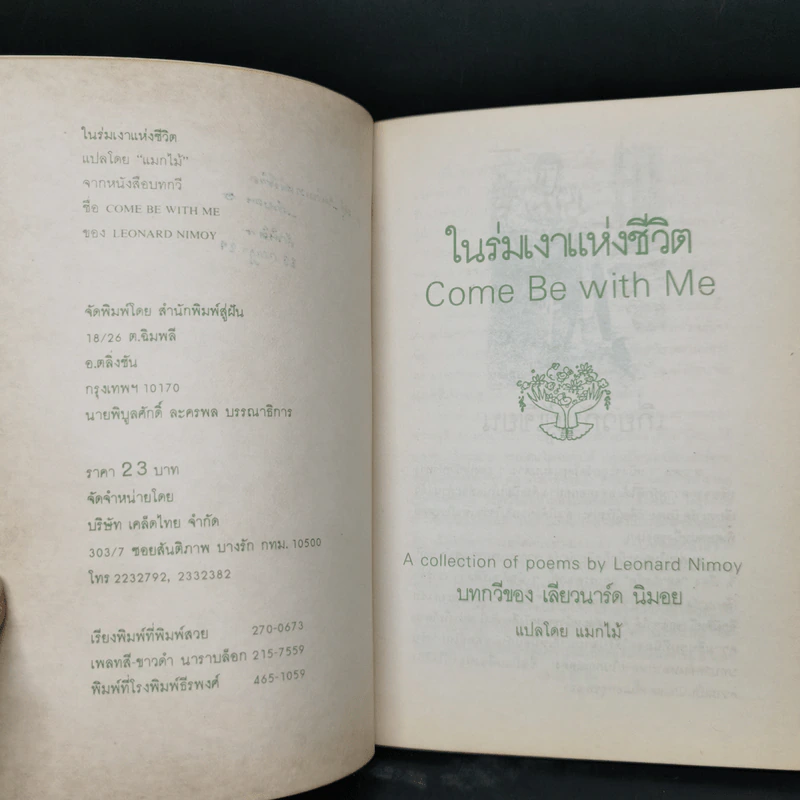 ในร่มเงาแห่งชีวิต
แปลโดย "แมกไม้"
จากหนังสือบทกวี
ชื่อ COME BE WITH ME
ของ LEONARD NIMOY
จัดพิมพ์โดย สำนักพิมพ์สู่ฝัน
18/26 ต.ฉิมพลี
อ.ตลิ่งชัน
กรุงเทพฯ 10170
นายพิบูลศักดิ์ ละครพล บรรณาธิการ
ราคา 23 บาท
จัดจำหน่ายโดย
บริษัท เคล็ดไทย จำกัด
303/7 ซอยสันติภาพ บางรัก กทม. 10500
โทร 2232792, 2332382
เรียงพิมพ์ที่พิมพ์สวย 270-0673
เพลทสี-ขาวดำ นาราบล็อก 215-7559
พิมพ์ที่โรงพิมพ์ธีรพงศ์ 465-1059
ในร่มเงาแห่งชีวิต
Come Be with Me
A collection of poems by Leonard Nimoy
บทกวีของ เลียวนาร์ด นิมอย
แปลโดย แมกไม้